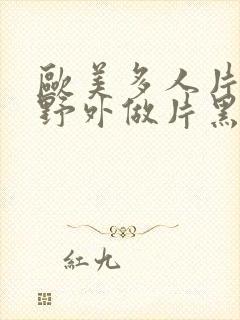 歐美多人片
野外做片黑
紅九